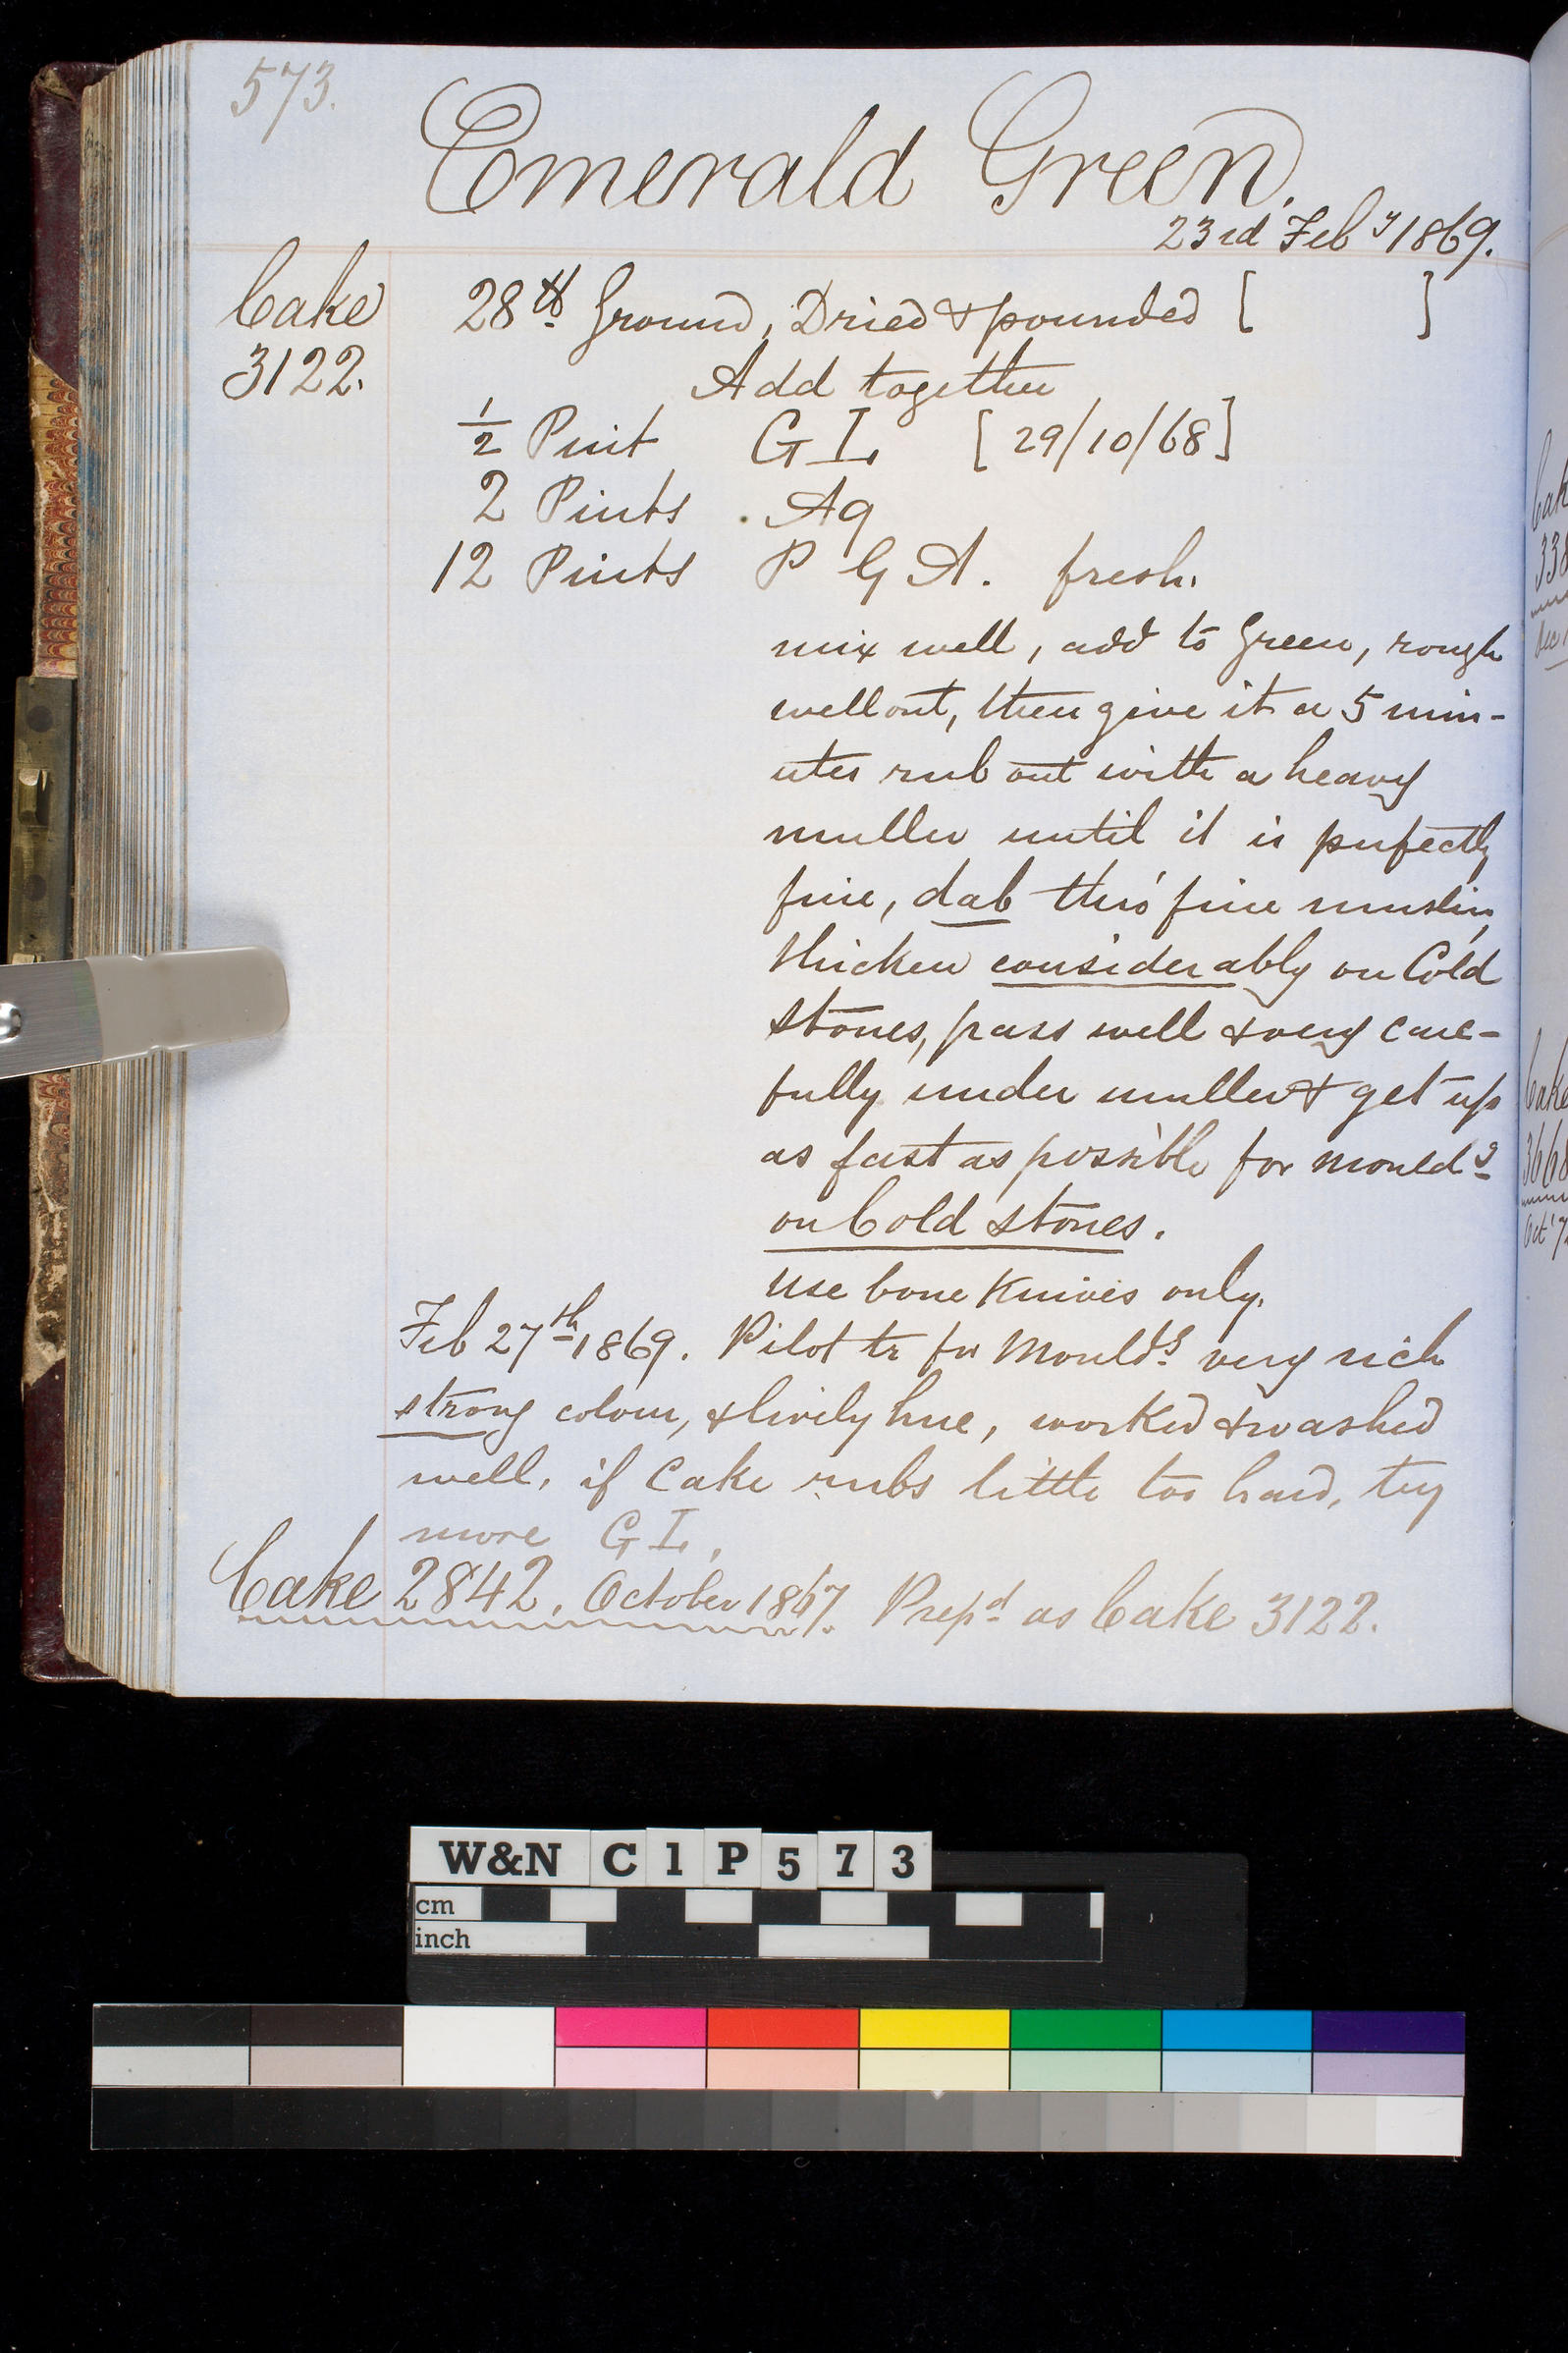 573.
Emerald Green.
23rd Feby 1869.
Cake 28 lb Ground, Dried & pounded [ ]
3122. Add together
1/2 Pint G I. [29/10/68]
2 Pints Aq
12 Pints P G A. fresh.
mix well, add to Green, rough
well out, then give it a 5 min-
utes rub out with a heavy
muller until it is perfectly
fine, dab thro' fine muslin,
thicken considerably on Cold
stones, pass well & very care-
fully under muller & get up
as fast as possible for mouldg
on Cold stones.
use bone Knives only.
Feb 27th 1869. Pilot tr for Mouldg. very rich
strong colour, & lively hue, worked & washed
well, if Cake rubs little too hard, try
more G I.
Cake 2842, October 1867. Prepd as Cake 3122.
Cake
Oct
W&N C1P573
cm
inch